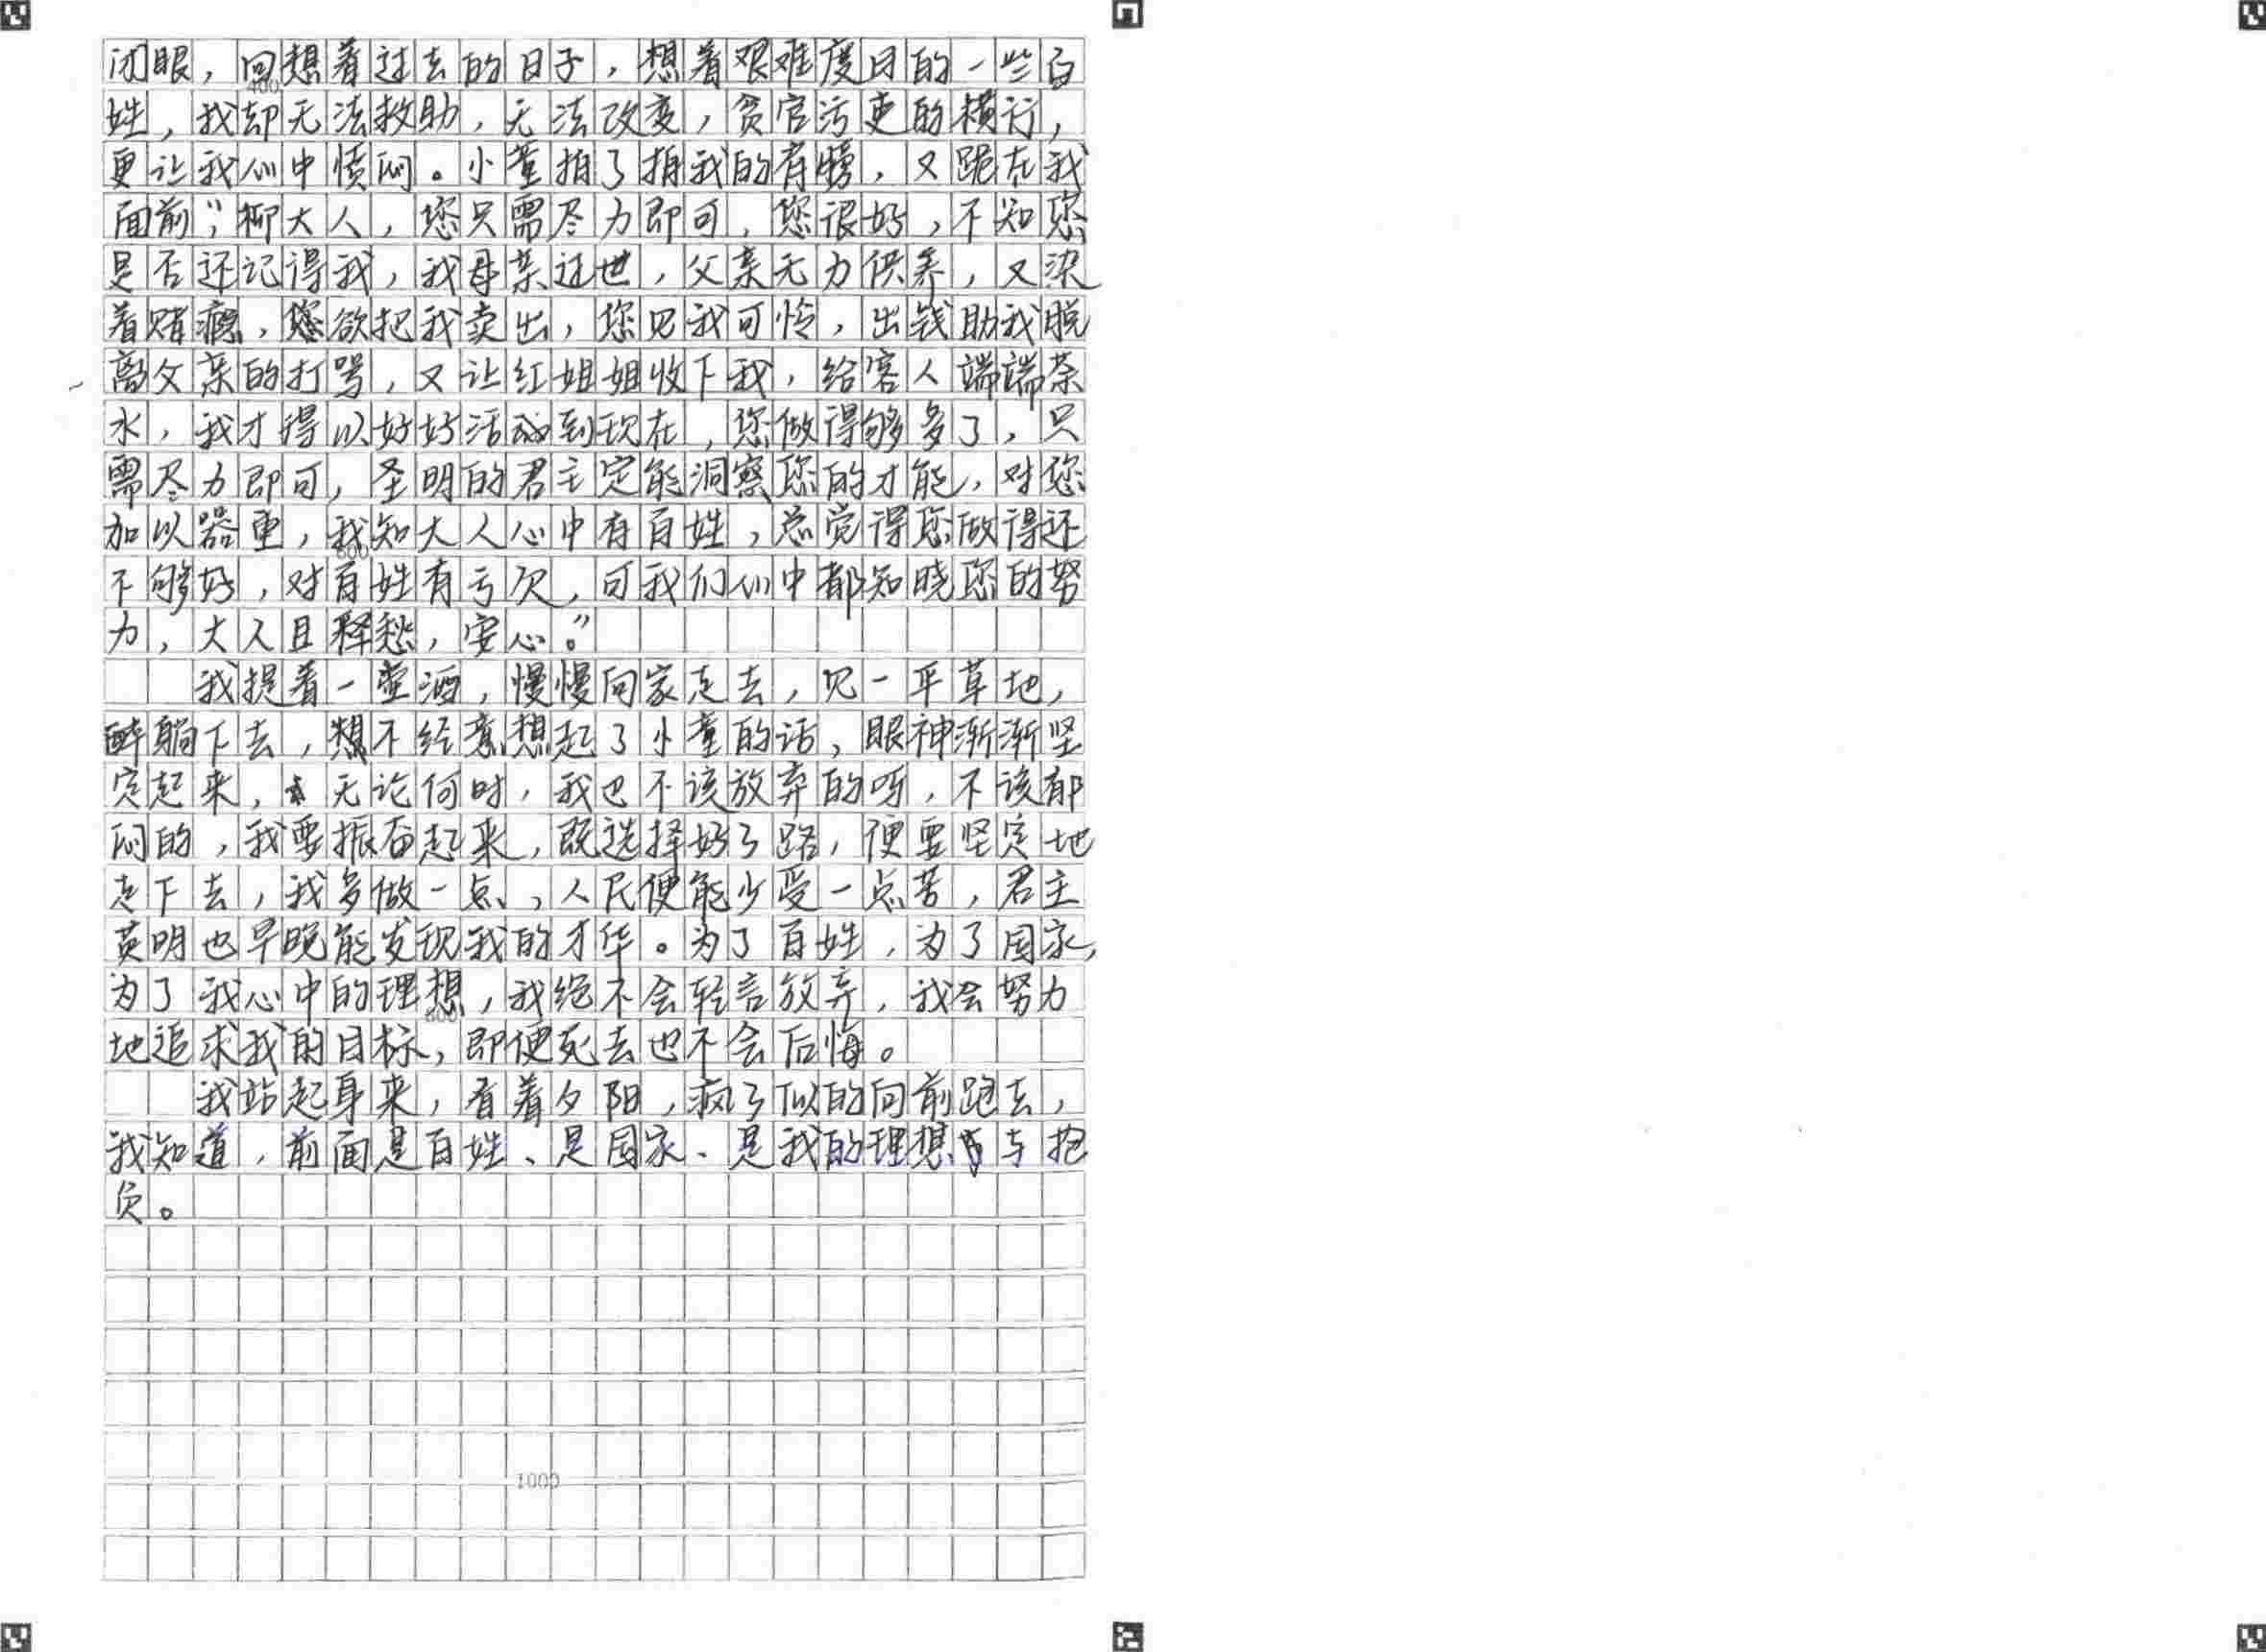 闭眼，回想着过去的日子，想着艰难度日的一些百
400
姓，我却无法救助，无法改变，贪官污吏的横行，
更让我心中愤闷。小童拍了拍我的肩膀，又跪在我
面前，“柳大人，您只需尽力即可，您很好，不知您
是否还记得我，我母亲过世，父亲无力供养，又染
着赌瘾，欲把我卖出，您见我可怜，出钱助我脱
离父亲的打骂，又让红姐姐收下我，给客人端端茶
水，我才得以好好活到现在，您做得够多了，只
需尽力即可，圣明的君主定能洞察您的才能，对您
加以器重，我知大人心中有百姓，总觉得您做得还
600
不够好，对百姓有亏欠，可我们心中都知晓您的努
力，大人且释愁，安心。”
我提着一壶酒，慢慢向家走去，见一平草地，
醉躺下去，不经意想起了小童的话，眼神渐渐坚
定起来，无论何时，我也不该放弃的呀，不该郁
闷的，我要振奋起来，既选择好了路，便要坚定地
走下去，我多做一点，人民便能少受一点苦，君主
英明也早晚能发现我的才华。为了百姓，为了国家，
为了我心中的理想，我绝不会轻言放弃，我会努力
800
地追求我的目标，即便死去也不会后悔。
我站起身来，看着夕阳，疯了似的向前跑去，
我知道，前面是百姓、是国家、是我的理想与抱
负。
1000